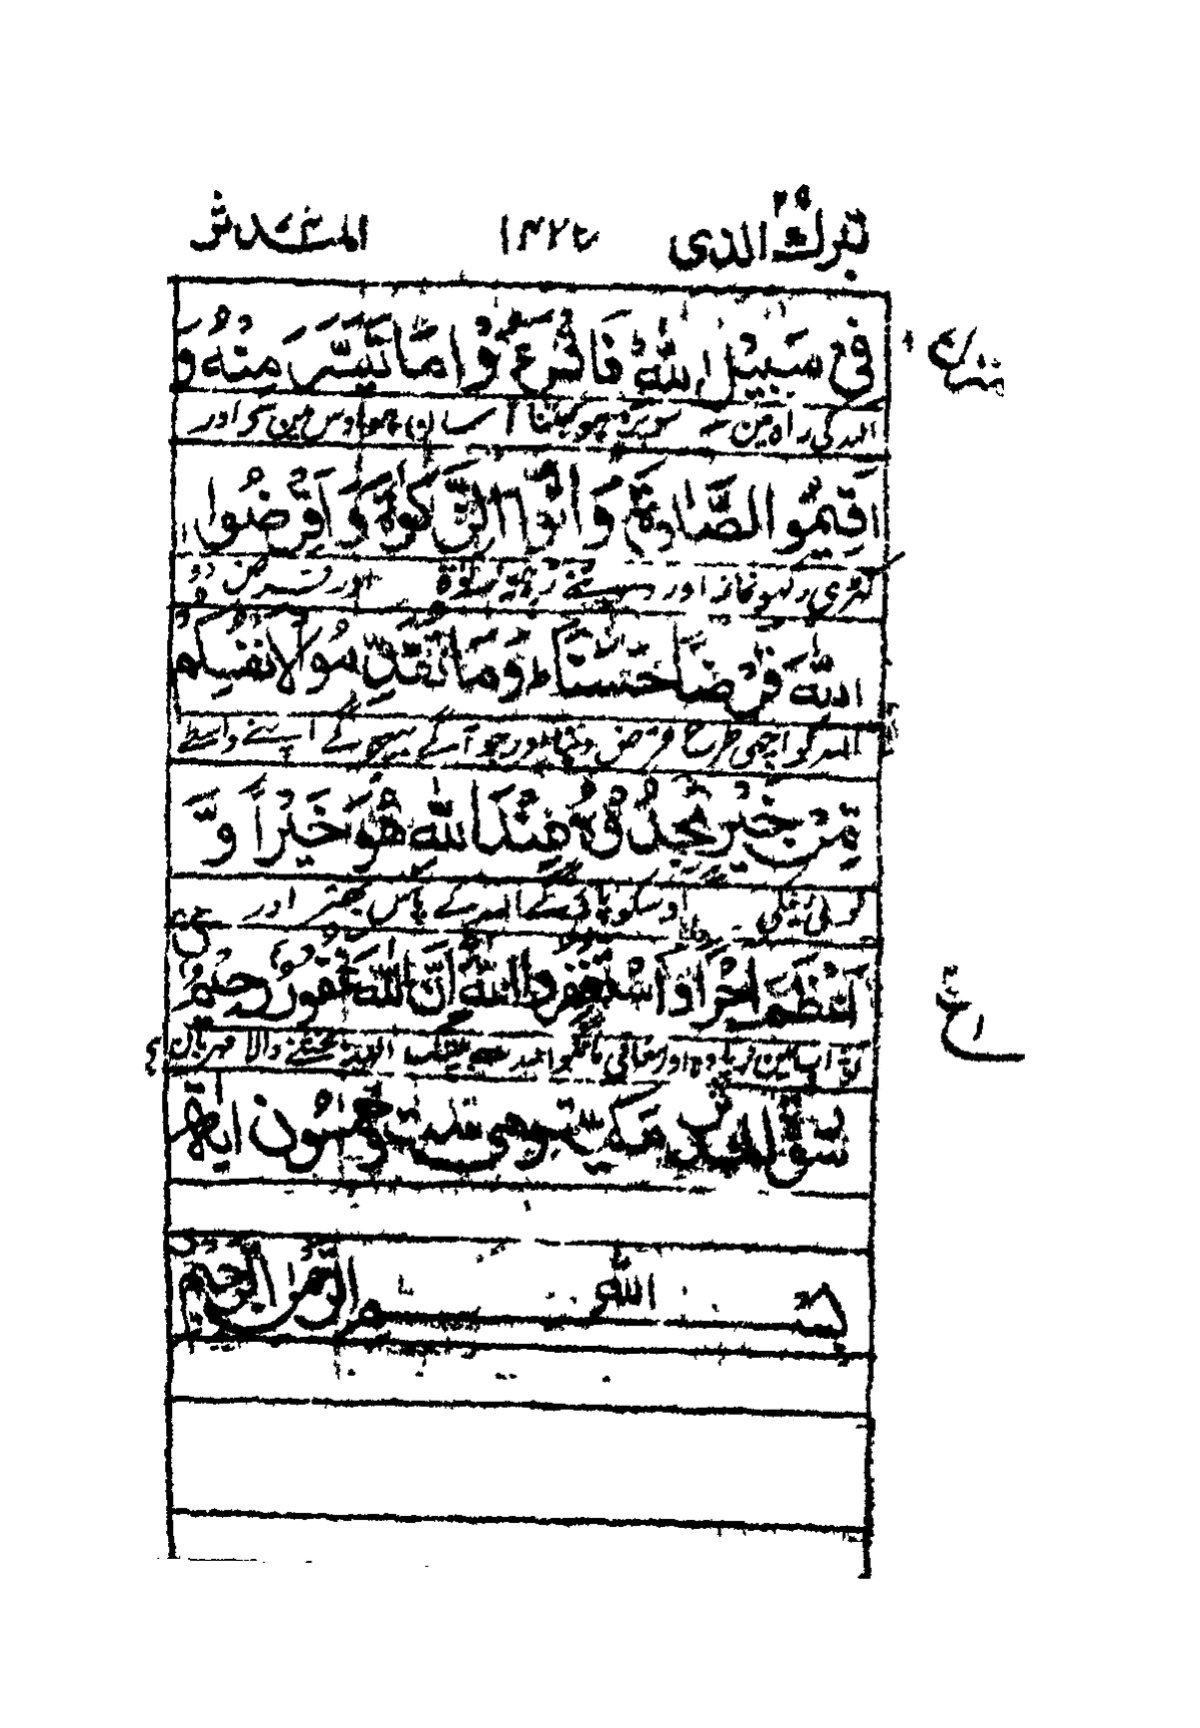 تبرك الذى ٢٩ المدثر
فِيْ سَبِيْلِ اللّٰهِ فَاقْرَءُوْا مَا تَيَسَّرَ مِنْهُ وَ
اللہ کی راہ مین سو پڑھو جتنا آسان ہو اوس مین سے اور
اَقِيْمُوا الصَّلٰوةَ وَاٰتُوا الزَّكٰوةَ وَاَقْرِضُوا
کھڑی رکھو نماز اور دیتے رہو زکوٰۃ اور قرض دو
اللّٰهَ قَرْضًا حَسَنًا ط وَمَا تُقَدِّمُوْا لِاَنْفُسِكُمْ
اللہ کو اچھی طرح قرض دینا اور جو آگے بھیجو گے اپنے واسطے
مِّنْ خَيْرٍ تَجِدُوْهُ عِنْدَ اللّٰهِ هُوَ خَيْرًا وَّ
کوئی نیکی اوسکو پاؤگے اللہ کے پاس بہتر اور
اَعْظَمَ اَجْرًا وَاسْتَغْفِرُوا اللّٰهَ اِنَّ اللّٰهَ غَفُوْرٌ رَّحِيْمٌ
ثواب مین زیادہ اور معافی مانگو اللہ سے بیشک اللہ بخشنے والا مہربان ہے
سورة المدثر مكية وهى ست وخمسون اية
بسم الله الرحمن الرحيم